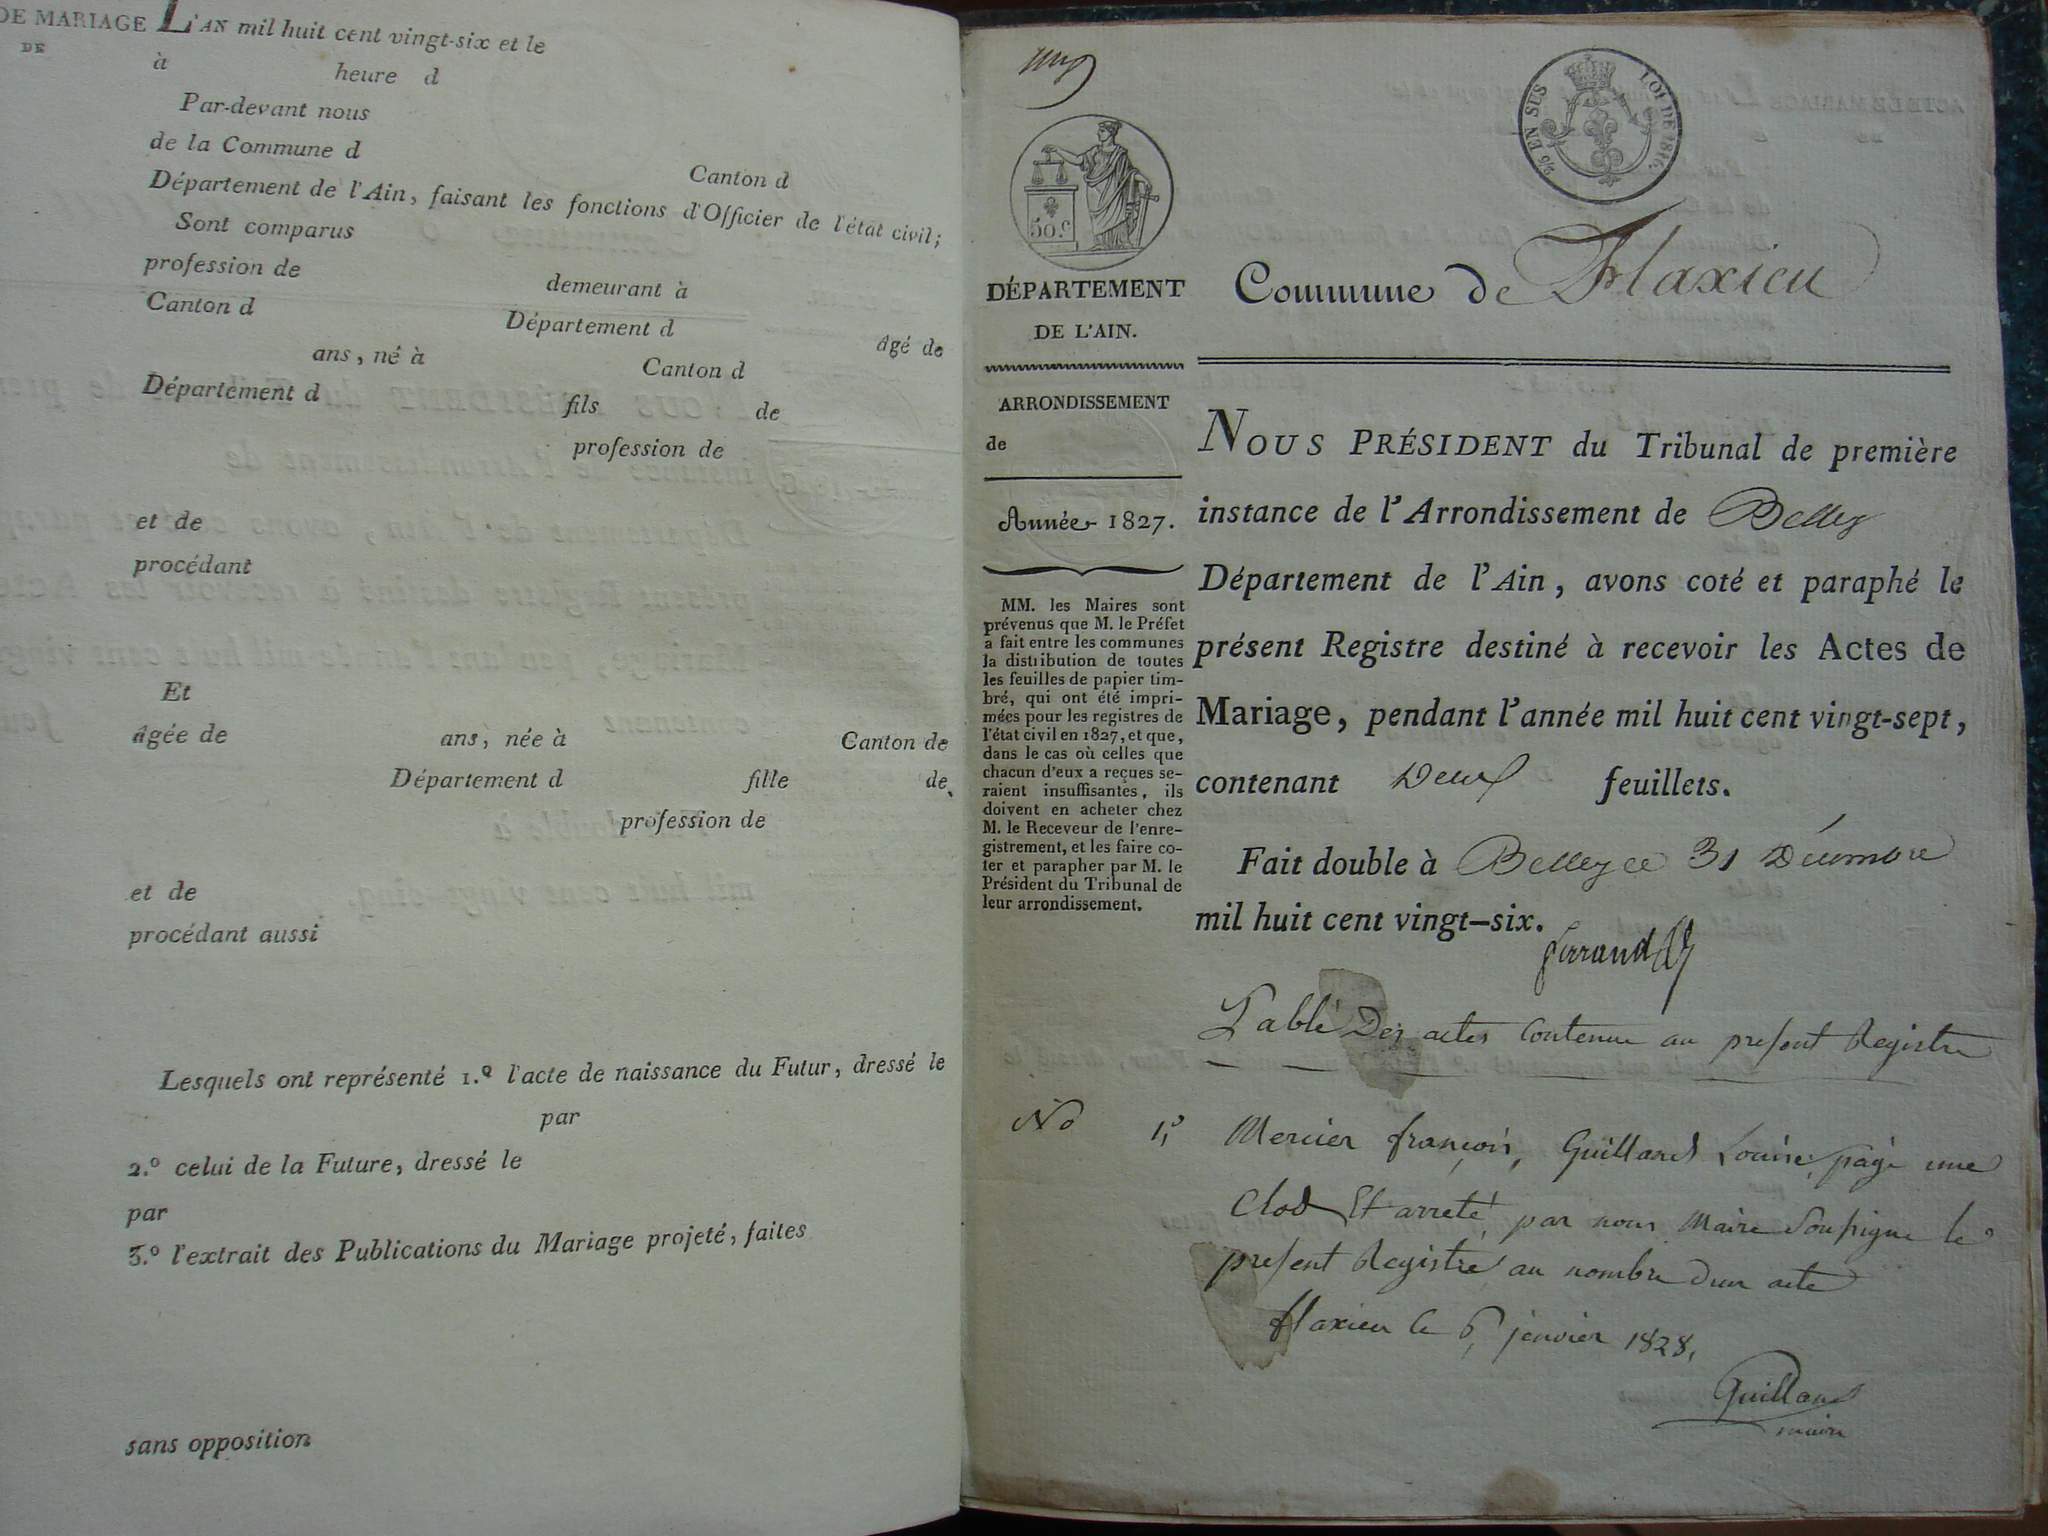 DE MARIAGE L'AN mil huit cent vingt-six et le
DE
à heure d
Par-devant nous
de la Commune d Canton d
Département de l'Ain, faisant les fonctions d'Officier de l'état civil;
Sont comparus
profession de demeurant à
Canton d Département d âgé de
ans, né à Canton d
Département d fils de
profession de
et de
procédant
Et
âgée de ans, née à Canton de
Département d fille de
profession de
et de
procédant aussi
Lesquels ont représenté 1.º l'acte de naissance du Futur, dressé le
par
2.º celui de la Future, dressé le
par
3.º l'extrait des Publications du Mariage projeté, faites
sans opposition
50.c
2/5 EN SUS LOI DE 1816.
DÉPARTEMENT
DE L'AIN.
ARRONDISSEMENT
de
Année 1827.
MM. les Maires sont
prévenus que M. le Préfet
a fait entre les communes
la distribution de toutes
les feuilles de papier tim-
bré, qui ont été impri-
mées pour les registres de
l'état civil en 1827, et que,
dans le cas où celles que
chacun d'eux a reçues se-
raient insuffisantes, ils
doivent en acheter chez
M. le Receveur de l'enre-
gistrement, et les faire co-
ter et parapher par M. le
Président du Tribunal de
leur arrondissement.
Commune de Flaxieu
NOUS PRÉSIDENT du Tribunal de première
instance de l'Arrondissement de Belley
Département de l'Ain, avons coté et paraphé le
présent Registre destiné à recevoir les Actes de
Mariage, pendant l'année mil huit cent vingt-sept,
contenant Deux feuillets.
Fait double à Belley ce 31 Décembre
mil huit cent vingt-six.
ferrand
Table Des actes Contenu au present Registre
No 1,º Mercier françois, Guilland Louise, page une
Clos Et arreté par nous Maire Soussigne le
present Registre au nombre dun acte
flaxieu le 6, janvier 1828,
Guilland
maire